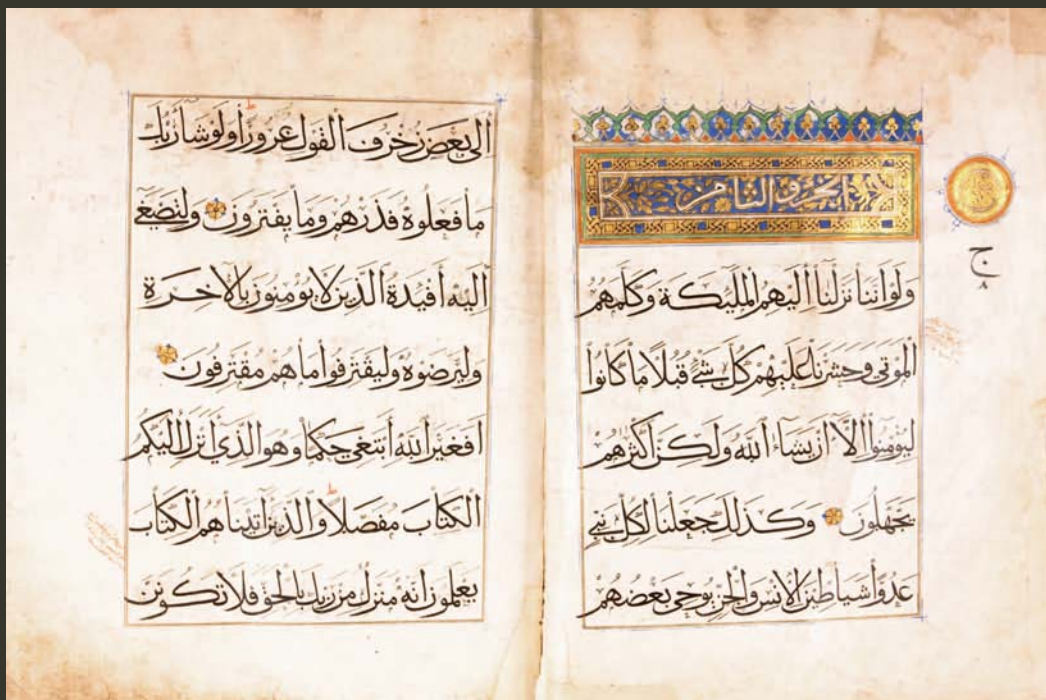 الجزو الثامن
ج
٨
ولو اننا نزلنا اليهم المليكة وكلمهم
الموتى وحشرنا عليهم كل شيء قبلا ما كانوا
ليومنوا الا ان يشاء الله ولكن اكثرهم
يجهلون وكذلك جعلنا لكل نبي
عدوا شياطين الانس والجن يوحي بعضهم
الى بعض زخرف القول غرورا ولو شا ربك
ما فعلوه فذرهم وما يفترون ولتصغى
اليه افيدة الذين لا يومنون بالاخرة
وليرضوه وليقترفوا ما هم مقترفون
افغير الله ابتغي حكما وهو الذي انزل اليكم
الكتاب مفصلا والذين اتيناهم الكتاب
يعلمون انه منزل من ربك بالحق فلا تكونن